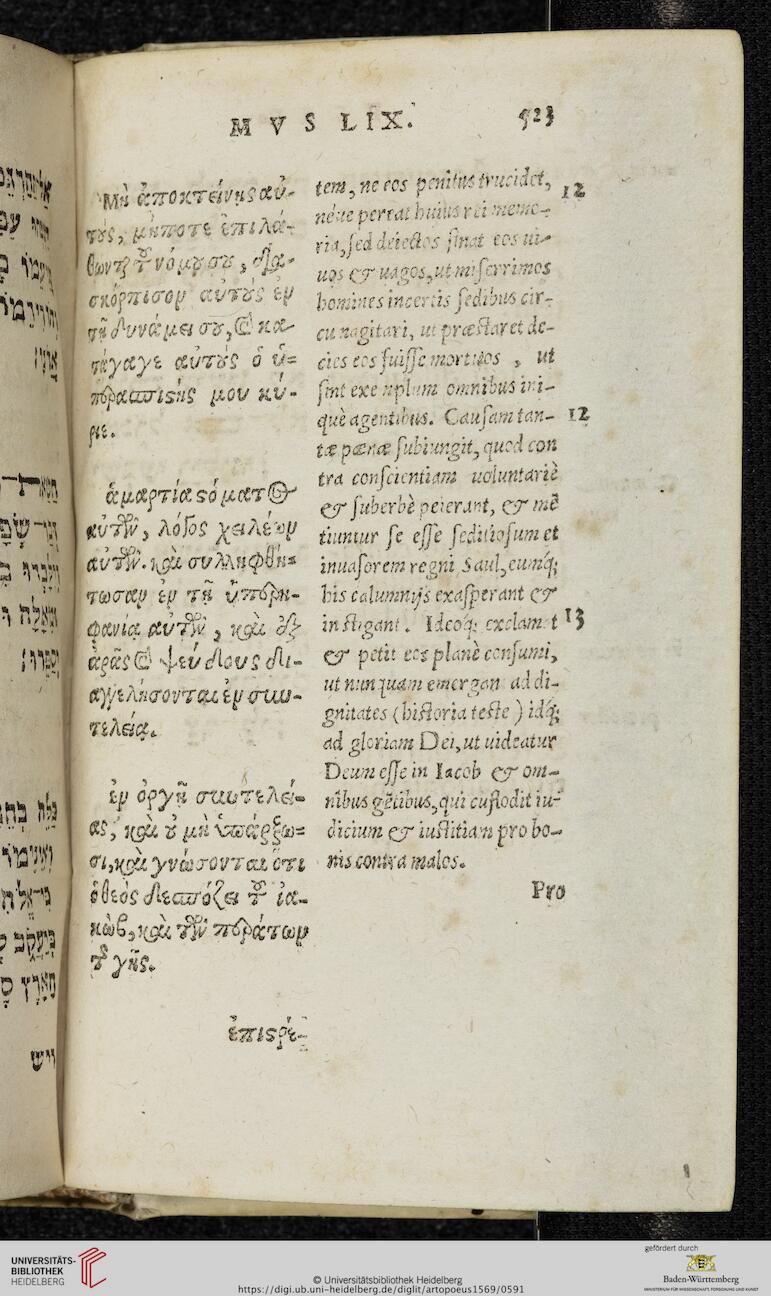 MVS LIX. 523
Μὴ ἀποκτείνῃς αὐ-
τοὺς, μήποτε ἐπιλά-
θωντ τ νόμου σου, δια-
σκόρπισον αὐτοὺς ἐν
τῇ δυνάμει σου, καὶ κα-
τάγαγε αὐτοὺς ὁ ὑ=
περασπιστής μου κύ-
ριε.
ἁμαρτία στόματος
αὐτῶν, λόγος χειλέων
αὐτῶν. καὶ συλληφθή=
τωσαν ἐν τῇ ὑπερη-
φανίᾳ αὐτῶν, καὶ ἐξ
ἀρᾶς καὶ ψεύδους δι-
αγγελήσονται ἐν συν-
τελείᾳ.
ἐν ὀργῇ συντελεί-
ας, καὶ οὐ μὴ ὑπάρξω=
σι, καὶ γνώσονται ὅτι
ὁ θεὸς δεσπόζει τοῦ ἰα-
κὼβ, καὶ τῶν περάτων
τῆς γῆς.
ἐπιστρέ-
tem, ne eos penitus trucidet, 12
néue pereat huius rei memo-
ria, sed deiectos sinat eos ui-
uos & uagos, ut miserrimos
homines incertis sedibus cir-
cunagitari, ut præstaret de-
cies eos fuisse mortuos , ut
sint exemplum omnibus ini-
què agentibus. Causam tan- 12
tæ pœnæ subiungit, quod con
tra conscientiam uoluntariè
& superbè peierant, & mē
tiuntur se esse seditiosum et
inuasorem regni Saul, eumq́;
his calumnijs exasperant &
instigant. Ideoq; exclamat 13
& petit eos planè consumi,
ut nunquam emergant ad di-
gnitates (historia teste) idq́;
ad gloriam Dei, ut uideatur
Deum esse in Iacob & om-
nibus gētibus, qui custodit iu-
dicium & iustitiam pro bo-
nis contra malos.
Pro
UNIVERSITÄTS-
BIBLIOTHEK
HEIDELBERG
© Universitätsbibliothek Heidelberg
https://digi.ub.uni-heidelberg.de/diglit/artopoeus1569/0591
gefördert durch
Baden-Württemberg
MINISTERIUM FÜR WISSENSCHAFT, FORSCHUNG UND KUNST